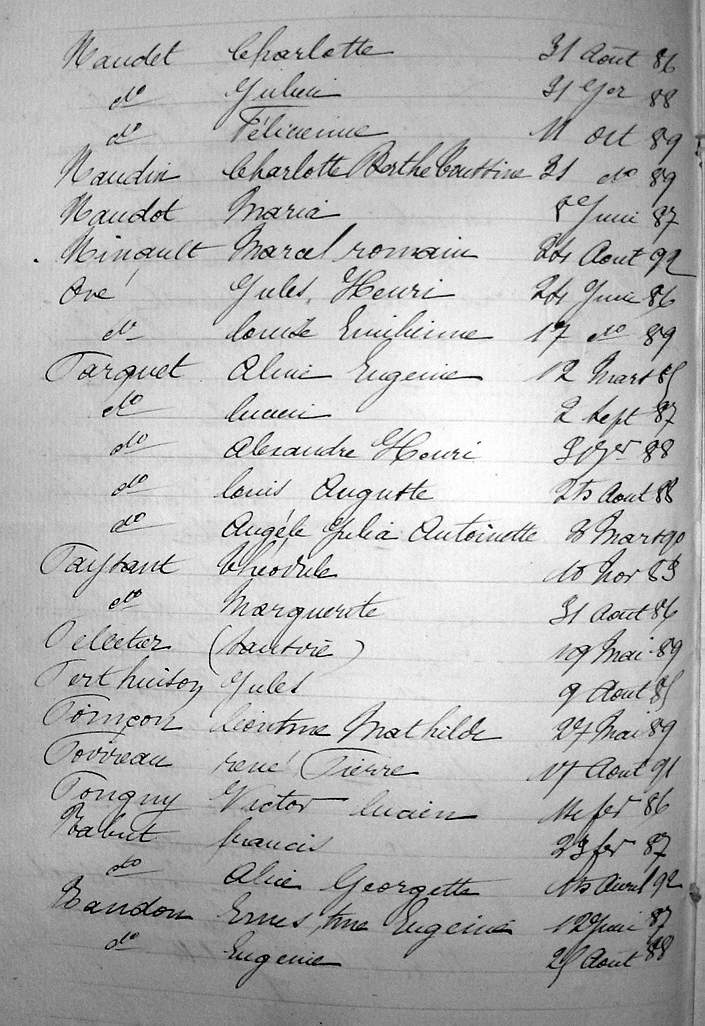 Naudet Charlotte 31 Août 86
do Julien 31 88
do Félicienne 11 Oct 89
Naudin Charlotte Berthe 21 do 89
Naudot Maria 8 Juin 87
Ninault Marcel romain 24 Aout 92
Ové Jules, Henri 24 Juin 86
do Louise Emilienne 17 do 89
Parquet Aline Eugenie 12 Mars 85
do Lucien 2 Sept 87
do Alexandre Henri 88
do Louis Auguste 25 Aout 88
do Angéle Julia Antoinette 2 Mars 90
Paysant Théodule 10 Nov 83
do Marguerite 31 Août 86
Pelletier ( ) 19 Mai 89
Perthuison Jules 9 Aout 85
Poinçon Léontine Mathilde 27 Mai 89
Poireau rené Pierre 17 Aout 91
Pougny Victor Lucien fer 86
Rabut francis 23 fer 87
do Alice Georgette 15 Avril 92
Randon Ernestine Eugenie 12 Juin 87
do Eugenie 25 Aout 88